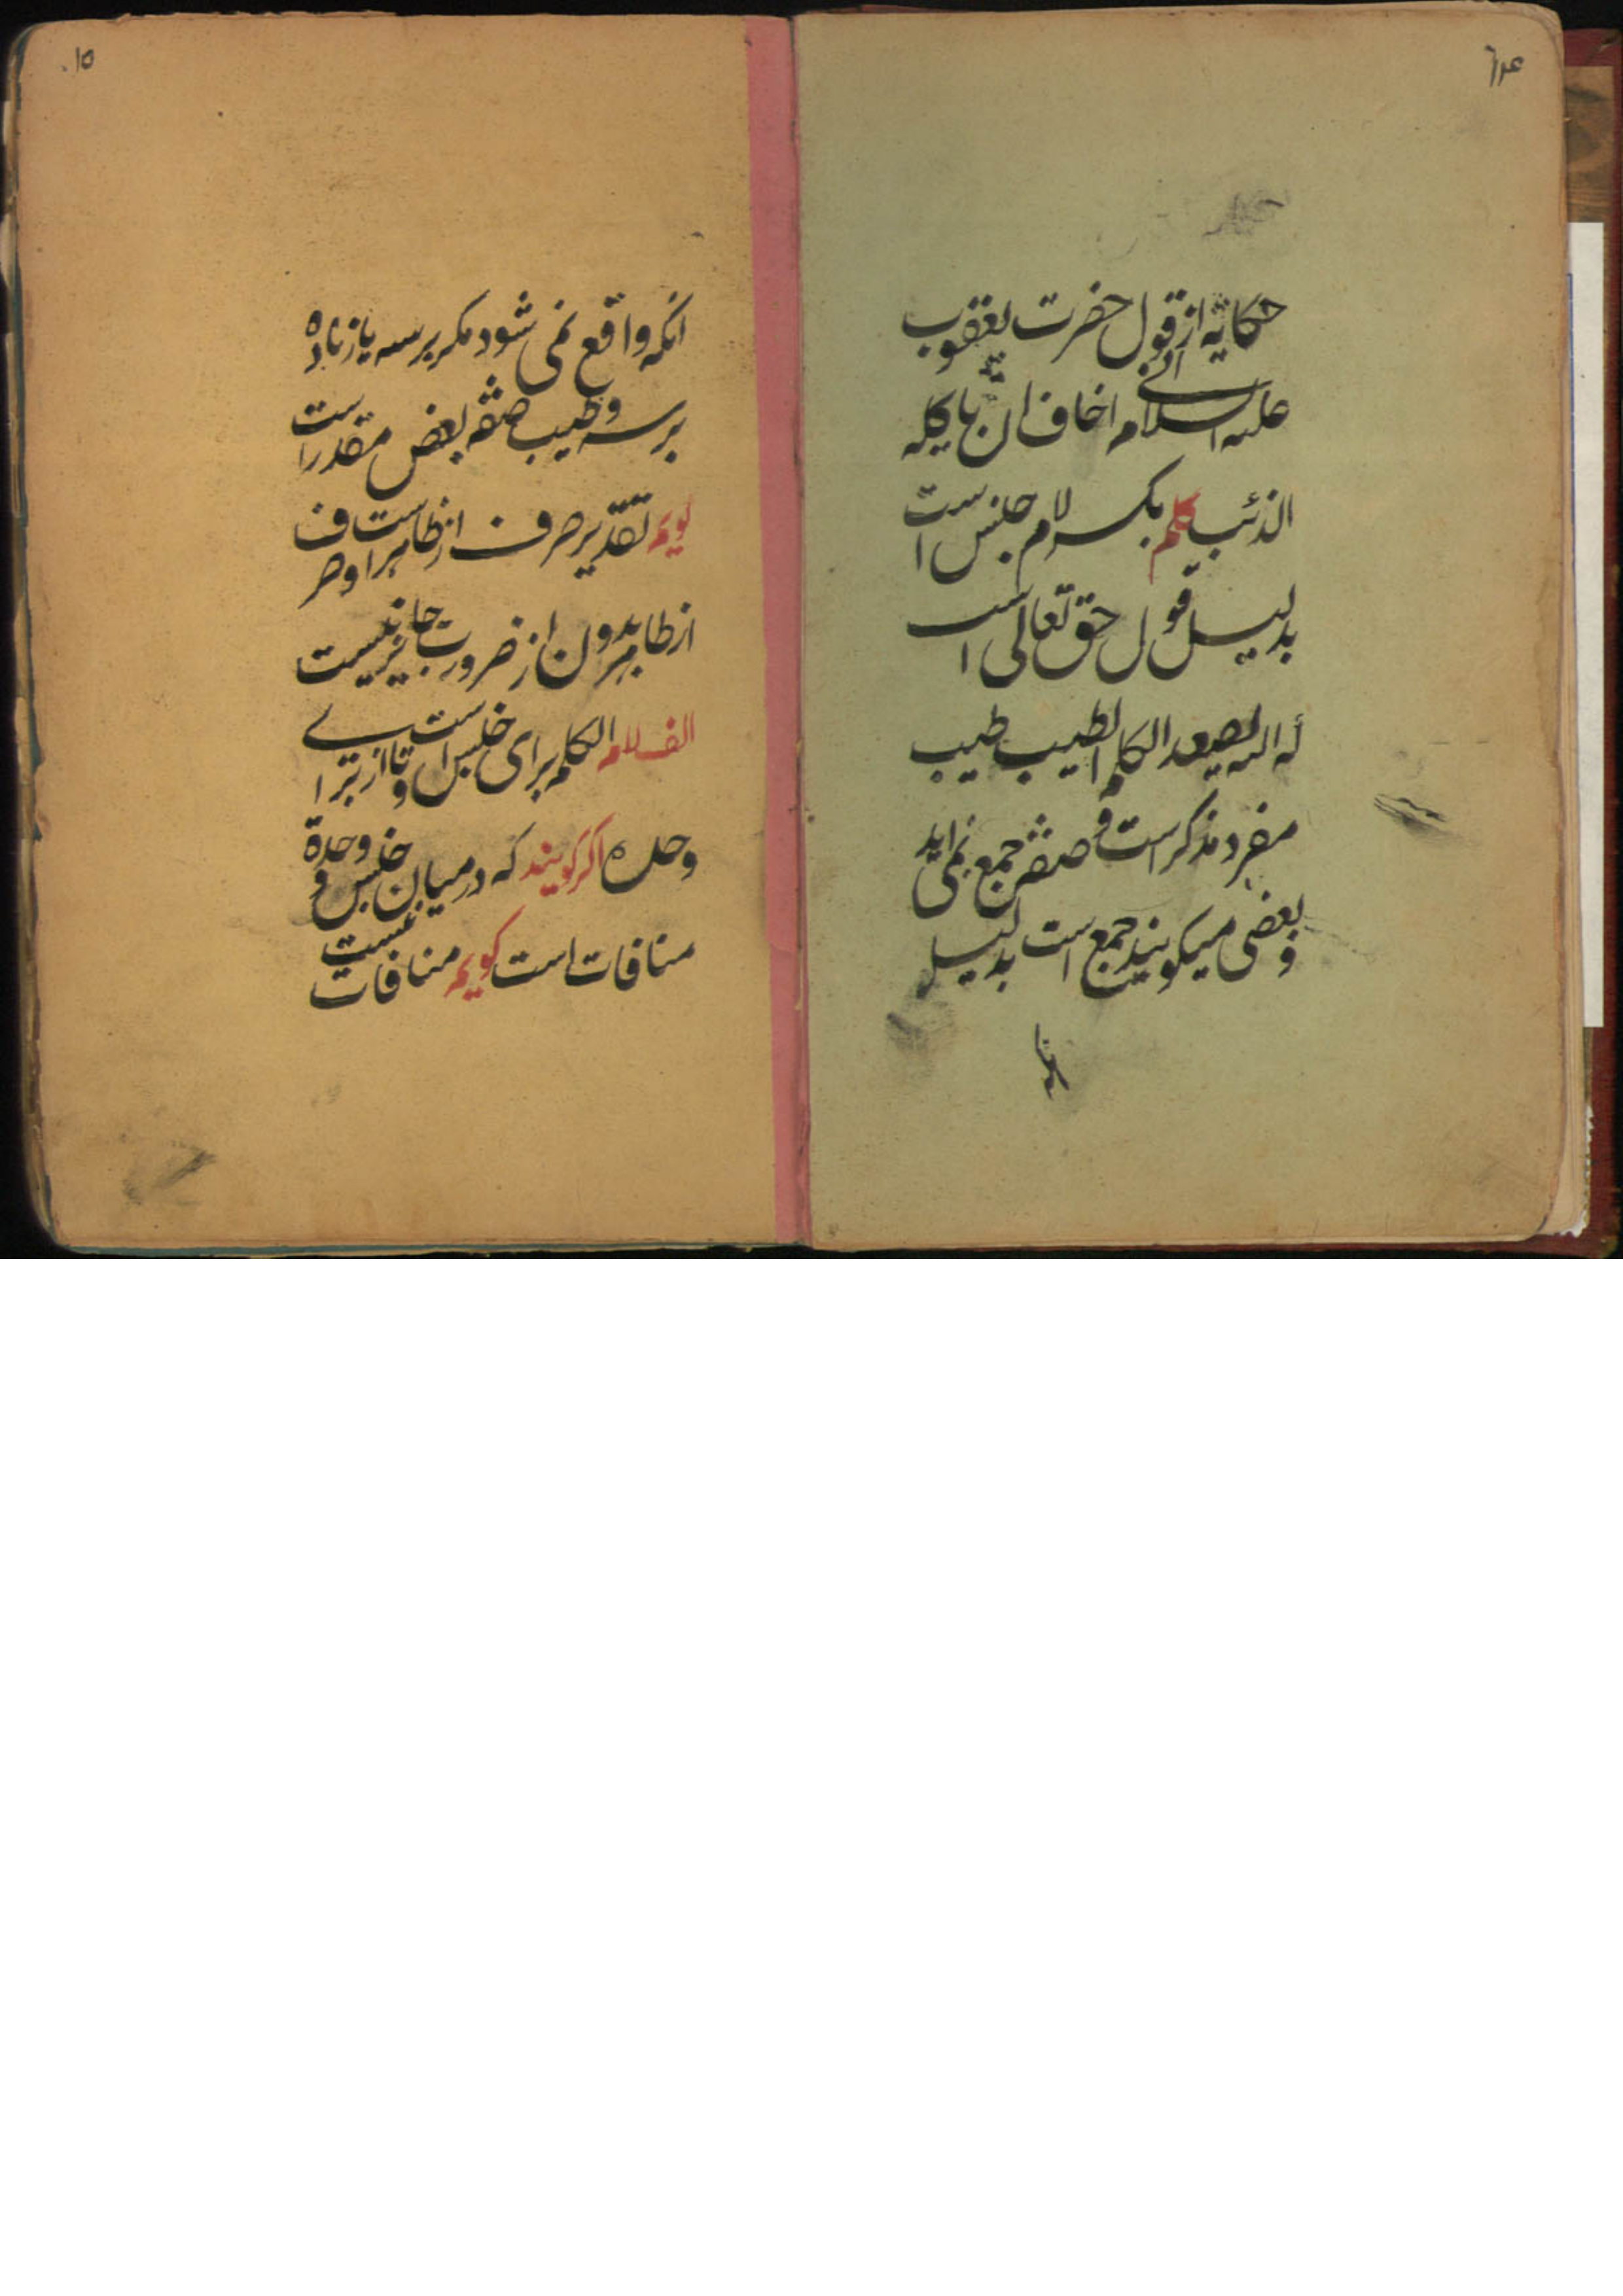 حکایة از قول حضرت یعقوب
علیه السلام انی اخاف ان یاکله
الذئب کلم بکسر لام جنس است
بدلیل قول حق تعالی است
الیه یصعد الکلم الطیب طیب
مفرد مذکر است و صفة جمع نمی اید
و بعضی میکویند جمع است بدلیل
انکه
۱۵
انکه واقع نمی شود مکر بر سه یا زیاده
بر سه و طیب صفة بعض مقدر است
کویم تقدیر صرف از ظاهر است و صرف
از ظاهر بدون از ضرورت جایز نیست
الف لام الکلم برای جنس است و تا از برای
وحده اکر کویند که در میان جنس و وحدة
منافات است کویم منافات نیست